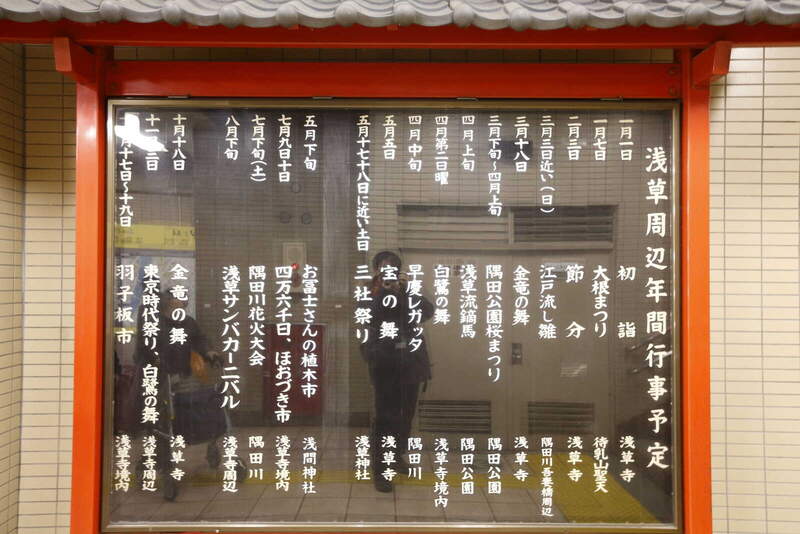 浅草周辺年間行事予定
一月一日 初詣 浅草寺
一月七日 大根まつり 待乳山聖天
二月三日 節分 浅草寺
三月三日近い(日) 江戸流し雛 隅田川吾妻橋周辺
三月十八日 金竜の舞 浅草寺
三月下旬〜四月上旬 隅田公園桜まつり 隅田公園
四月上旬 浅草流鏑馬 隅田公園
四月第二日曜 白鷺の舞 浅草寺境内
四月中旬 早慶レガッタ 隅田川
五月五日 宝の舞 浅草寺
五月十七十八日に近い土日 三社祭り 浅草神社
五月下旬 お冨士さんの植木市 浅間神社
七月九日十日 四万六千日、ほおづき市 浅草寺境内
七月下旬(土) 隅田川花火大会 隅田川
八月下旬 浅草サンバカーニバル 浅草寺周辺
十月十八日 金竜の舞 浅草寺
十一月三日 東京時代祭り、白鷺の舞 浅草寺周辺
月十七日〜十九日 羽子板市 浅草寺境内